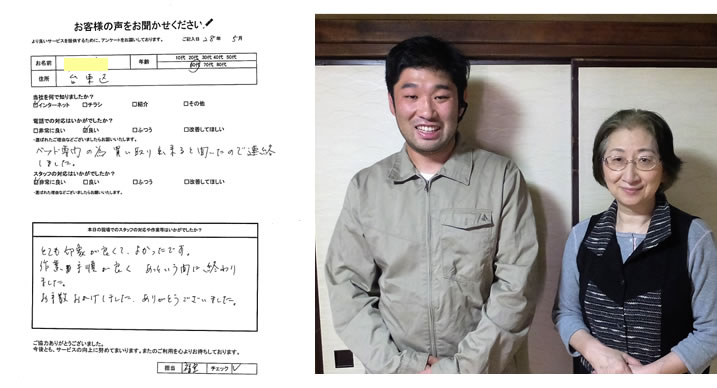 お客様の声をお聞かせください。
より良いサービスを提供するために、アンケートをお願いしております。 ご記入日 28年 5月
お名前 年齢 10代 20代 30代 40代 50代
60代 70代 80代
住所 台東区
当社を何で知りましたか?
☑インターネット □チラシ □紹介 □その他
電話での対応はいかがでしたか?
□非常に良い ☑良い □ふつう □改善してほしい
・選ばれた理由などございましたらお願いいたします。
ベッド専門の為 買い取り出来ると聞いたので連絡
しました。
スタッフの対応はいかがでしたか?
☑非常に良い □良い □ふつう □改善してほしい
・選ばれた理由などございましたらお願いいたします。
本日の現場でのスタッフの対応や作業等はいかがでしたか?
とても印象が良くて、よかったです。
作業手順が良く あっという間に終わり
ました。
お手数おかけしました。ありがとうございました。
ご協力ありがとうございました。
今後とも、サービスの向上に努めてまいります。またのご利用を心よりお待ちしております。
担当 チェック